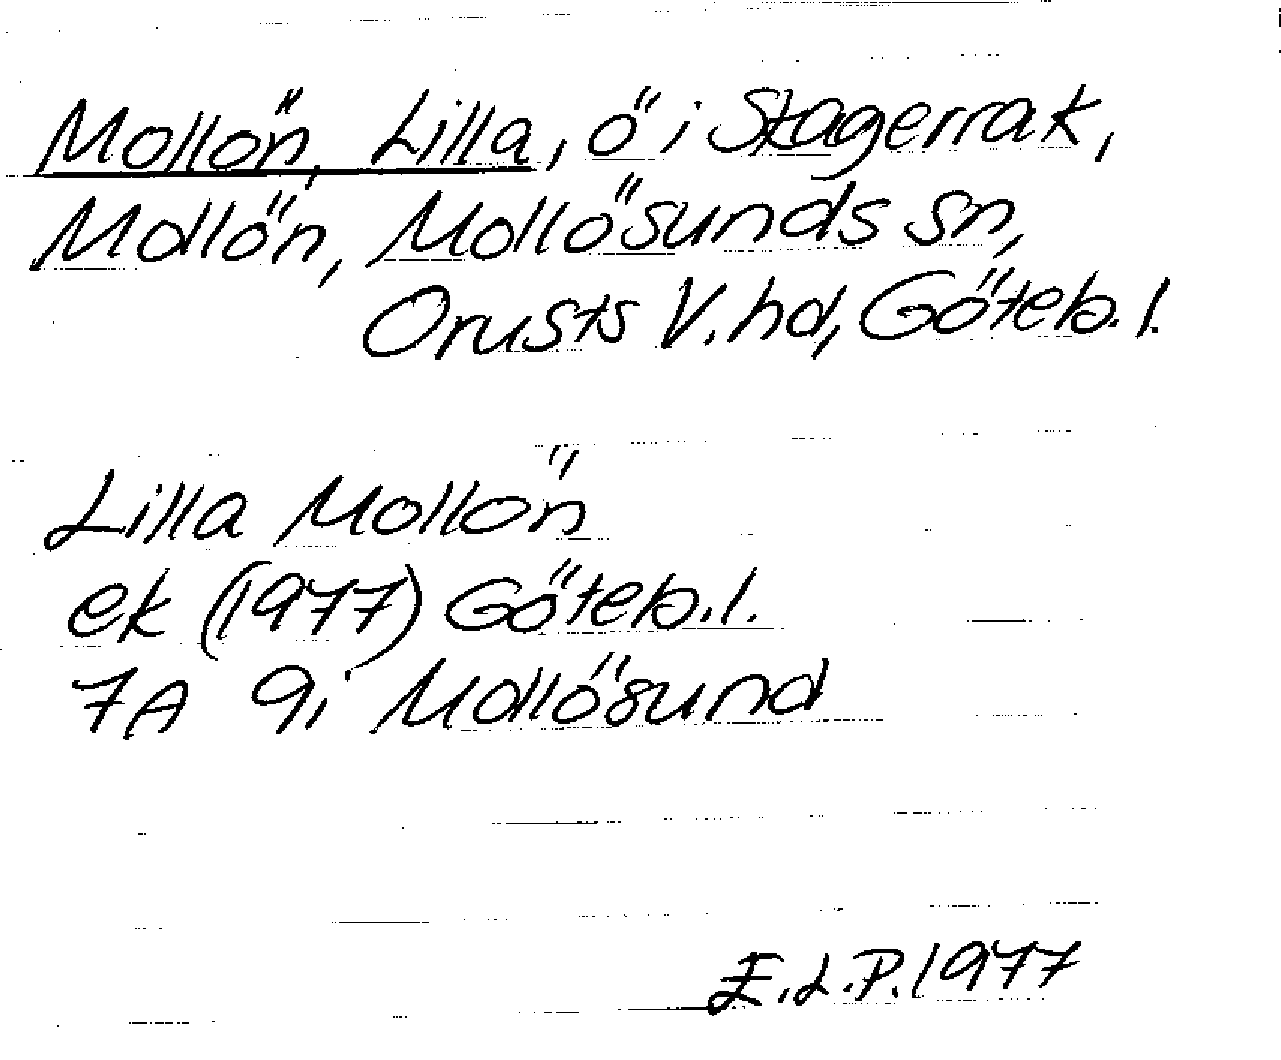 Mollön, Lilla, ö i Skagerrak,
Mollön, Mollösunds sn,
Orusts V. hd, Göteb. l.
Lilla Mollön
ek (1977) Göteb. l.
7A 9i Mollösund
E.L.P. 1977